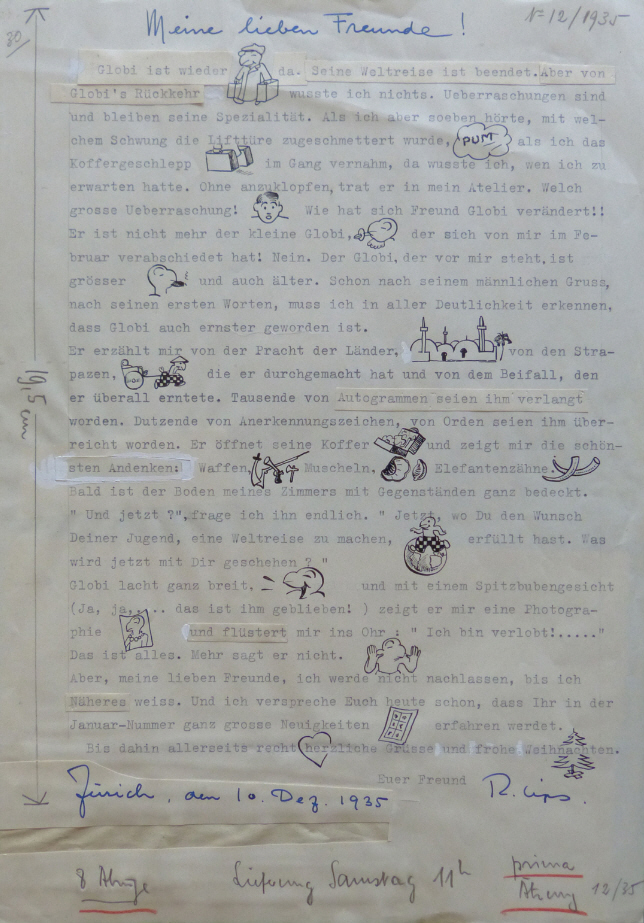 Meine lieben Freunde !
N= 12/1935
30
Globi ist wieder da. Seine Weltreise ist beendet. Aber von
Globi's Rückkehr wusste ich nichts. Ueberraschungen sind
und bleiben seine Spezialität. Als ich aber soeben hörte, mit wel-
chem Schwung die Lifttüre zugeschmettert wurde, PUM als ich das
Koffergeschlepp im Gang vernahm, da wusste ich, wen ich zu
erwarten hatte. Ohne anzuklopfen, trat er in mein Atelier. Welch
grosse Ueberraschung! Wie hat sich Freund Globi verändert!!
Er ist nicht mehr der kleine Globi, der sich von mir im Fe-
bruar verabschiedet hat! Nein. Der Globi, der vor mir steht, ist
grösser und auch älter. Schon nach seinem männlichen Gruss,
nach seinen ersten Worten, muss ich in aller Deutlichkeit erkennen,
dass Globi auch ernster geworden ist.
Er erzählt mir von der Pracht der Länder, von den Stra-
pazen, die er durchgemacht hat und von dem Beifall, den
er überall erntete. Tausende von Autogrammen seien ihm verlangt
worden. Dutzende von Anerkennungszeichen, von Orden seien ihm über-
reicht worden. Er öffnet seine Koffer und zeigt mir die schön-
sten Andenken: Waffen, Muscheln, Elefantenzähne.
Bald ist der Boden meines Zimmers mit Gegenständen ganz bedeckt.
" Und jetzt ?", frage ich ihn endlich. " Jetzt, wo Du den Wunsch
Deiner Jugend, eine Weltreise zu machen, erfüllt hast. Was
wird jetzt mit Dir geschehen ? "
Globi lacht ganz breit, und mit einem Spitzbubengesicht
(Ja, ja,... das ist ihm geblieben! ) zeigt er mir eine Photogra-
phie und flüstert mir ins Ohr : " Ich bin verlobt!....."
Das ist alles. Mehr sagt er nicht.
Aber, meine lieben Freunde, ich werde nicht nachlassen, bis ich
Näheres weiss. Und ich verspreche Euch heute schon, dass Ihr in der
Januar-Nummer ganz grosse Neuigkeiten erfahren werdet.
Bis dahin allerseits recht herzliche Grüsse und frohe Weihnachten.
Euer Freund R. Lips.
Zürich, den 10. Dez. 1935
19,5 cm
8 Abzüge Lieferung Samstag 11h prima
Ätzung 12/35